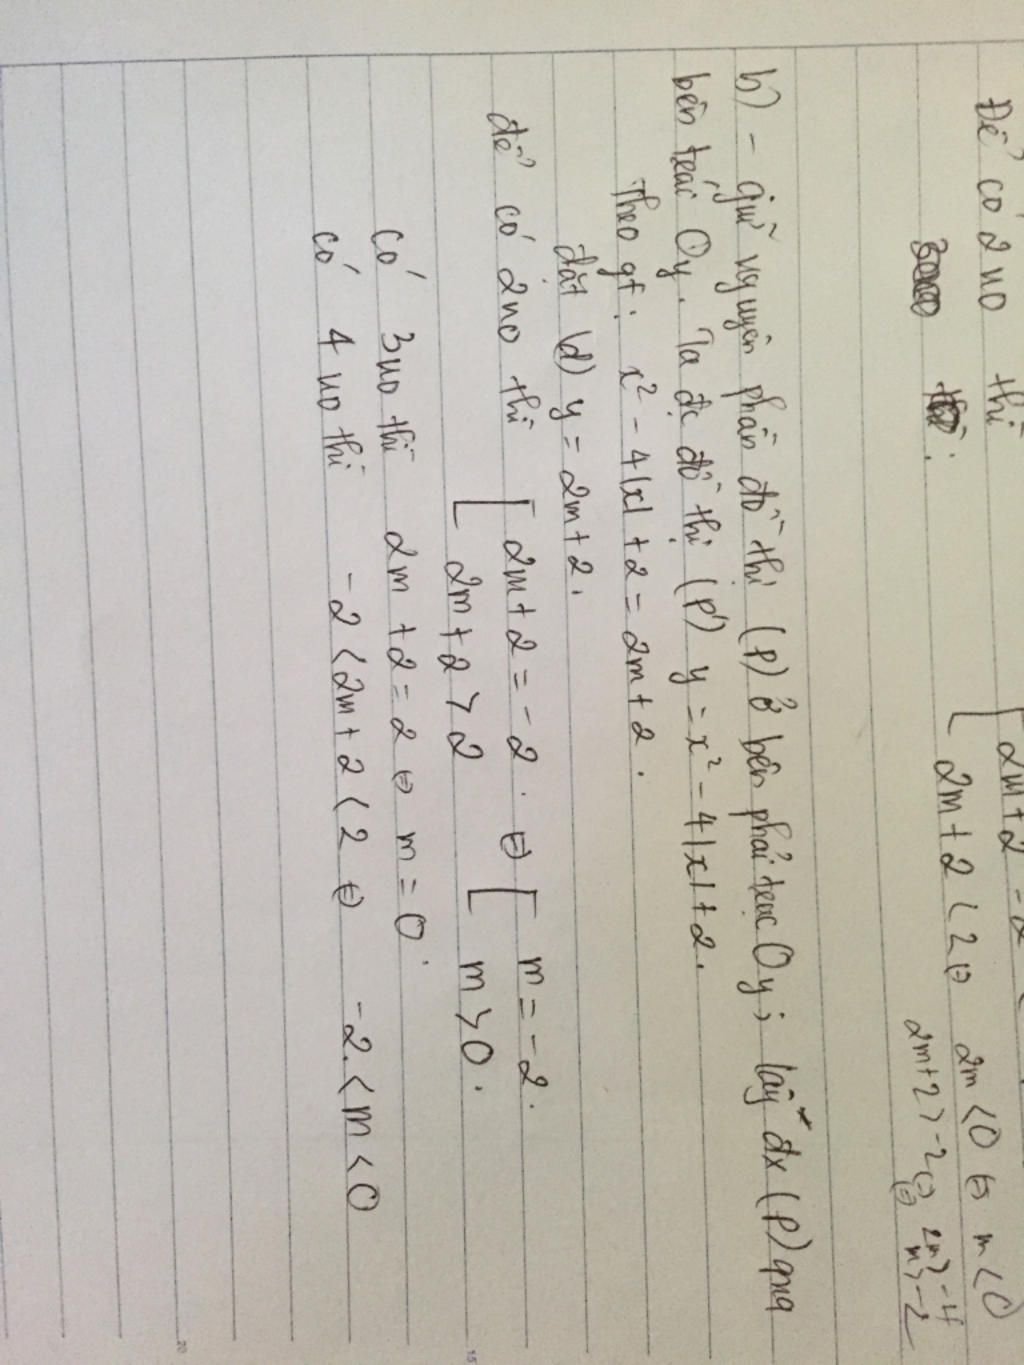 Để có 2 no thì [ 2m+2 -2
2m+2 < 2 ⇔ 2m < 0 ⇔ m < 0
2m+2 > -2 ⇔ 2m > -4
⇔ m > -2
b) - giữ nguyên phần đồ thị (P) ở bên phải trục Oy; lấy đx (P) qua
bên trái Oy. Ta đc đồ thị (P') y = x² - 4|x| + 2.
Theo gt: x² - 4|x| + 2 = 2m + 2.
đặt (d) y = 2m + 2.
để có 2 no thì [ 2m + 2 = -2. ⇔ [ m = -2.
2m + 2 > 2 m > 0.
có 3 no thì 2m + 2 = 2 ⇔ m = 0.
có 4 no thì -2 < 2m + 2 < 2 ⇔ -2 < m < 0
15
20